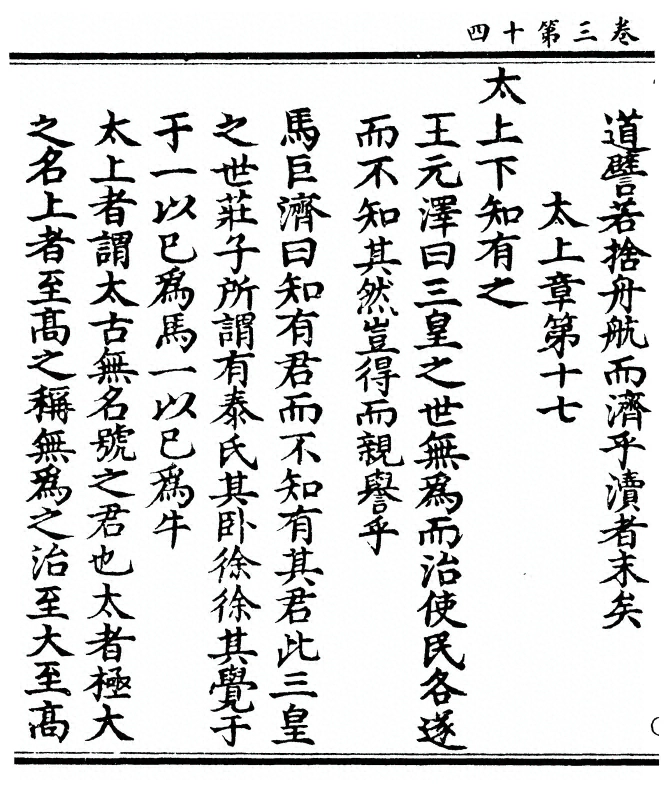 卷三第十四
道譬若捨舟航而濟乎瀆者末矣
太上章第十七
太上下知有之
王元澤曰三皇之世無爲而治使民各遂
而不知其然豈得而親譽乎
馬巨濟曰知有君而不知有其君此三皇
之世莊子所謂有泰氏其卧徐徐其覺于
于一以已爲馬一以已爲牛
太上者謂太古無名號之君也太者極大
之名上者至髙之稱無爲之治至大至髙